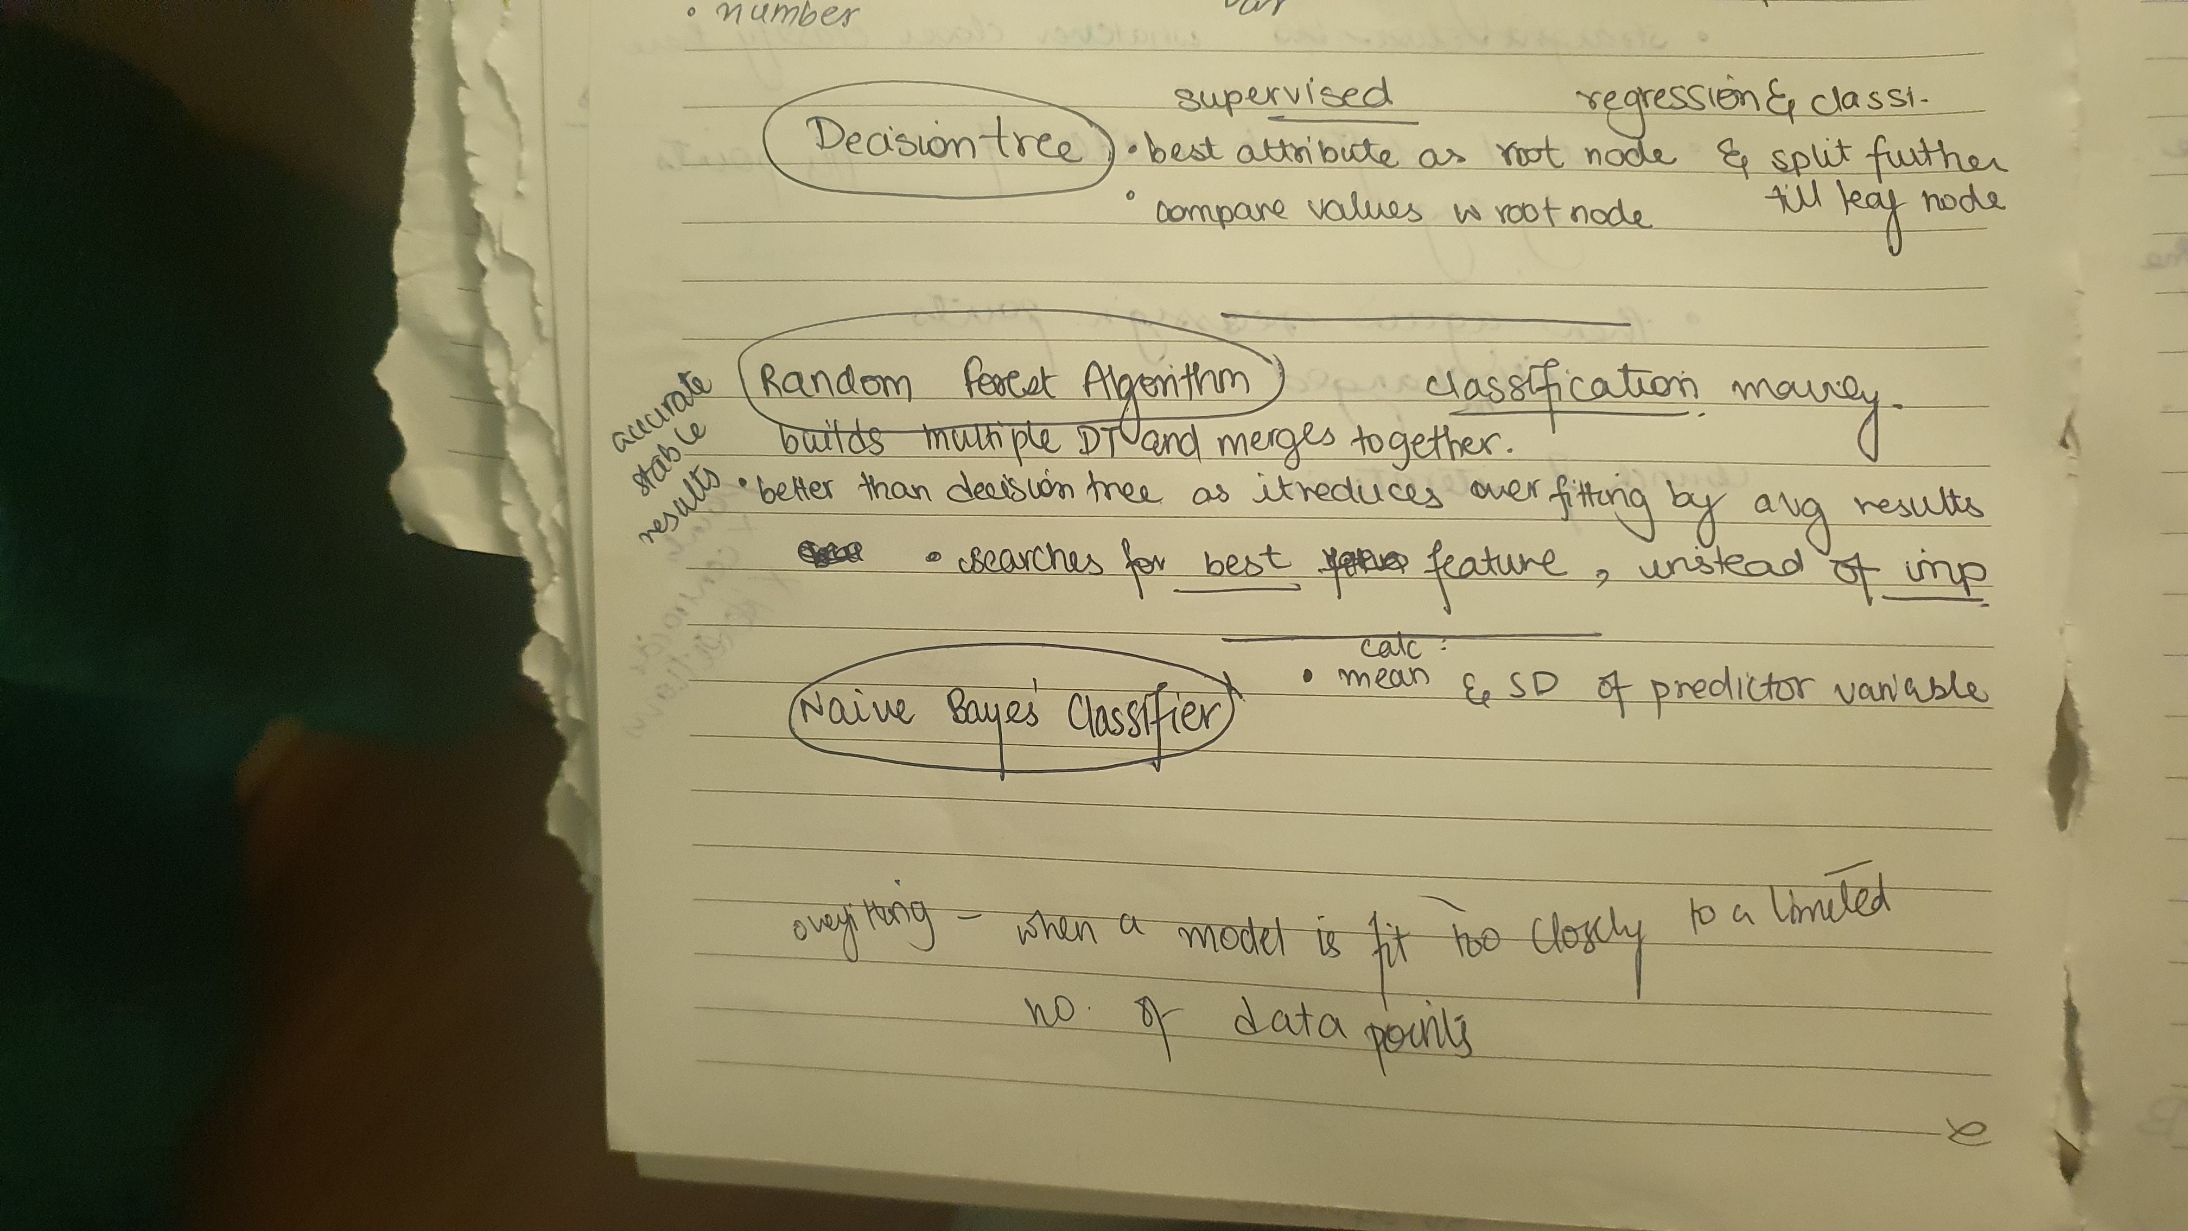 • number
supervised regression & classi-
Decision tree • best attribute as root node & split further
till leaf node
• compare values w root node
Random forest Algorithm classification
builds multiple DT and merges together.
accurate
stable
results
• better than decision tree as it reduces overfitting by avg results
• searches for best feature, instead of imp
calc :
Naive Bayes' Classifier • mean & SD of predictor variable
overfitting – when a model is fit too closely to a limited
no. of data points